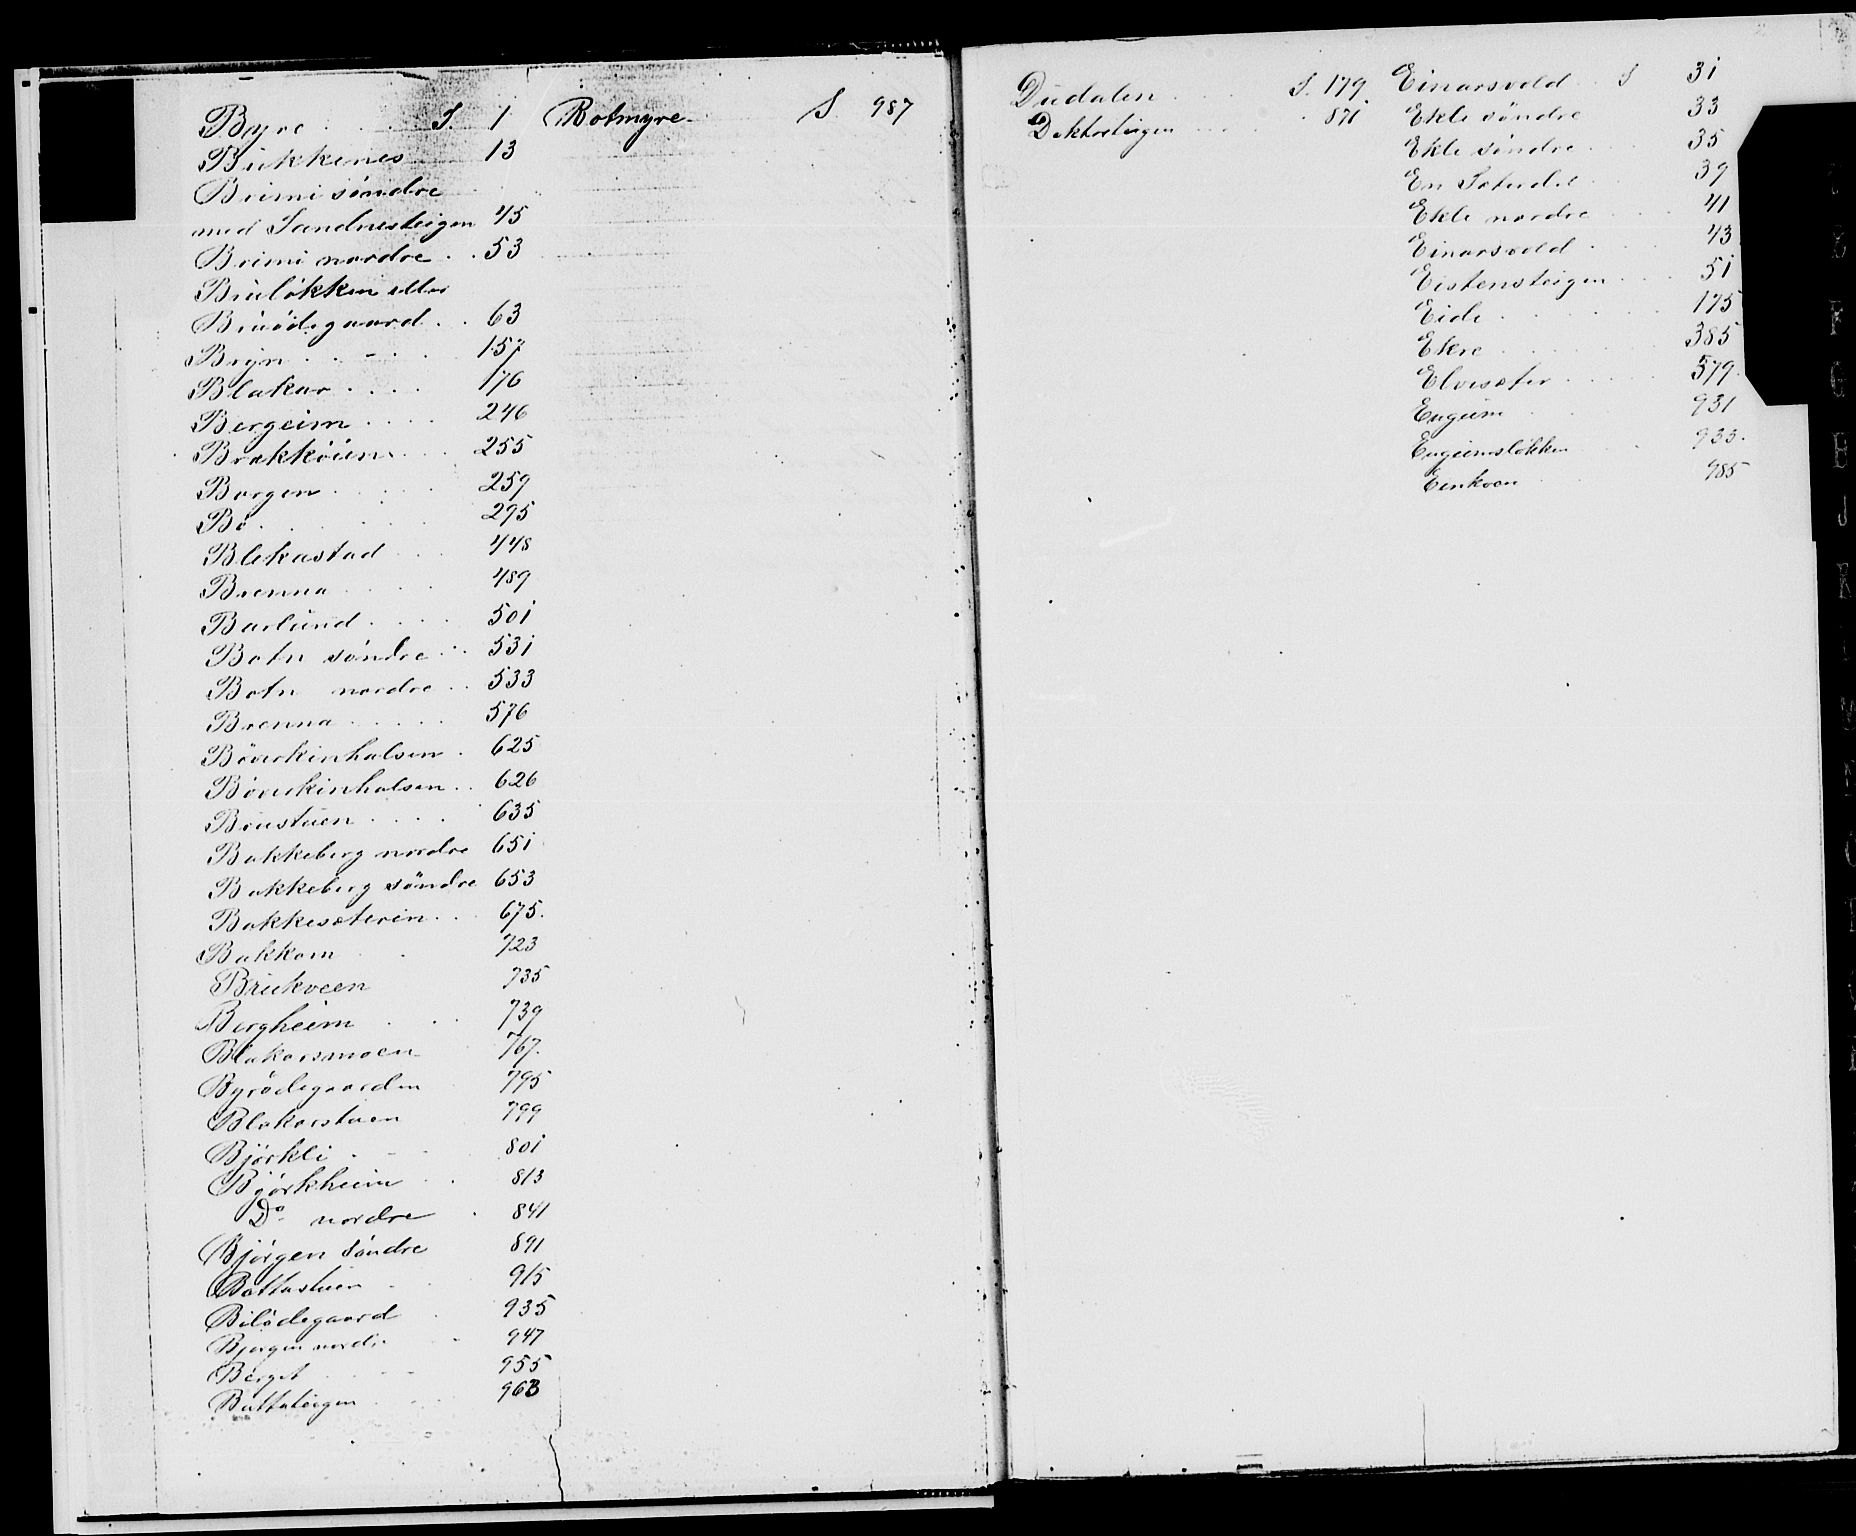 Byre S. 1
Bukkenes 13
Brimi söndre
med Sandnesteigen 45
Brimi nordre 53
Bruløkken eller
Bruødegaard 63
Bryn 157
Blakar 176
Bergeim 246
Brækkøien 255
Borgen 259
Bö 295
Blekastad 448
Brenna 489
Barlund 501
Botn söndre 531
Botn nordre 533
Brenna 576
Böverkinhalsen 625
Böverkinhalsen 626
Brustuen 635
Bakkeberg nordre 651
Bakkeberg söndre 653
Bakkesæteren 675
Bakkom 723
Brukveen 735
Bergheim 739
Blakarsmoen 767
Byrødegaarden 795
Blakarstuen 799
Björkli 801
Björkheim 813
Do nordre 841
Bjørgen Søndre 891
Bottastuen 915
Bilødegaard 935
Bjørgen nordr. 947
Berget 955
Buttateigen 963
Botmyre S 987
Dudalen S. 179
Doktorteigen 871
Einarsvold S 31
Ekle söndre 33
Ekle søndre 35
En Sæterdel 39
Ekle nordre 41
Einarsvold 43
Eistensteigen 51
Eide 175
Ekre 385
Elvesæter 579
Engeim 931
Engeimsløkken 933
Eenkveen 985